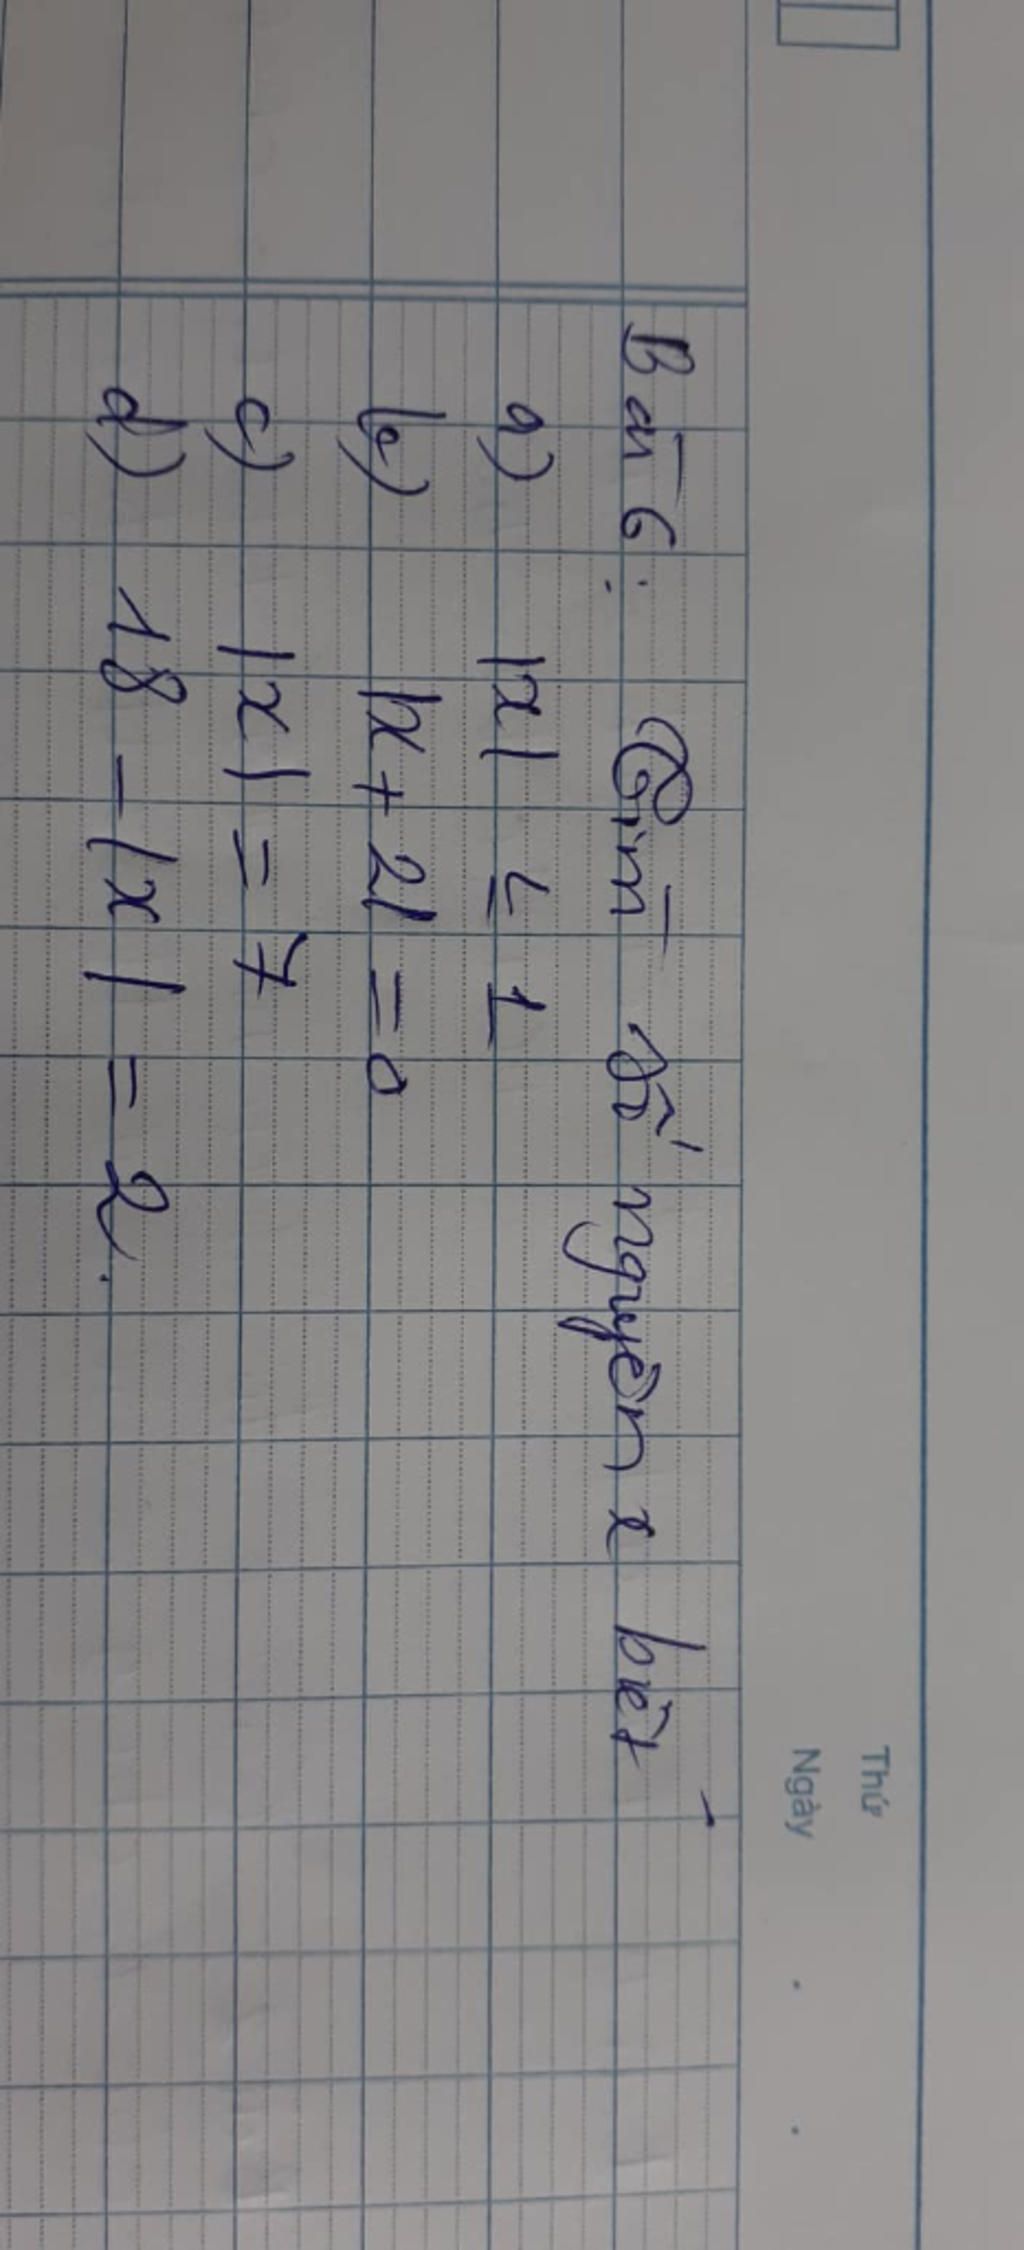 Thứ
Ngày
Bài 6: Tìm số nguyên x biết
a) |x| ≤ 1
b) |x + 2| = 0
c) |x| = 7
d) 18 - |x| = 2.